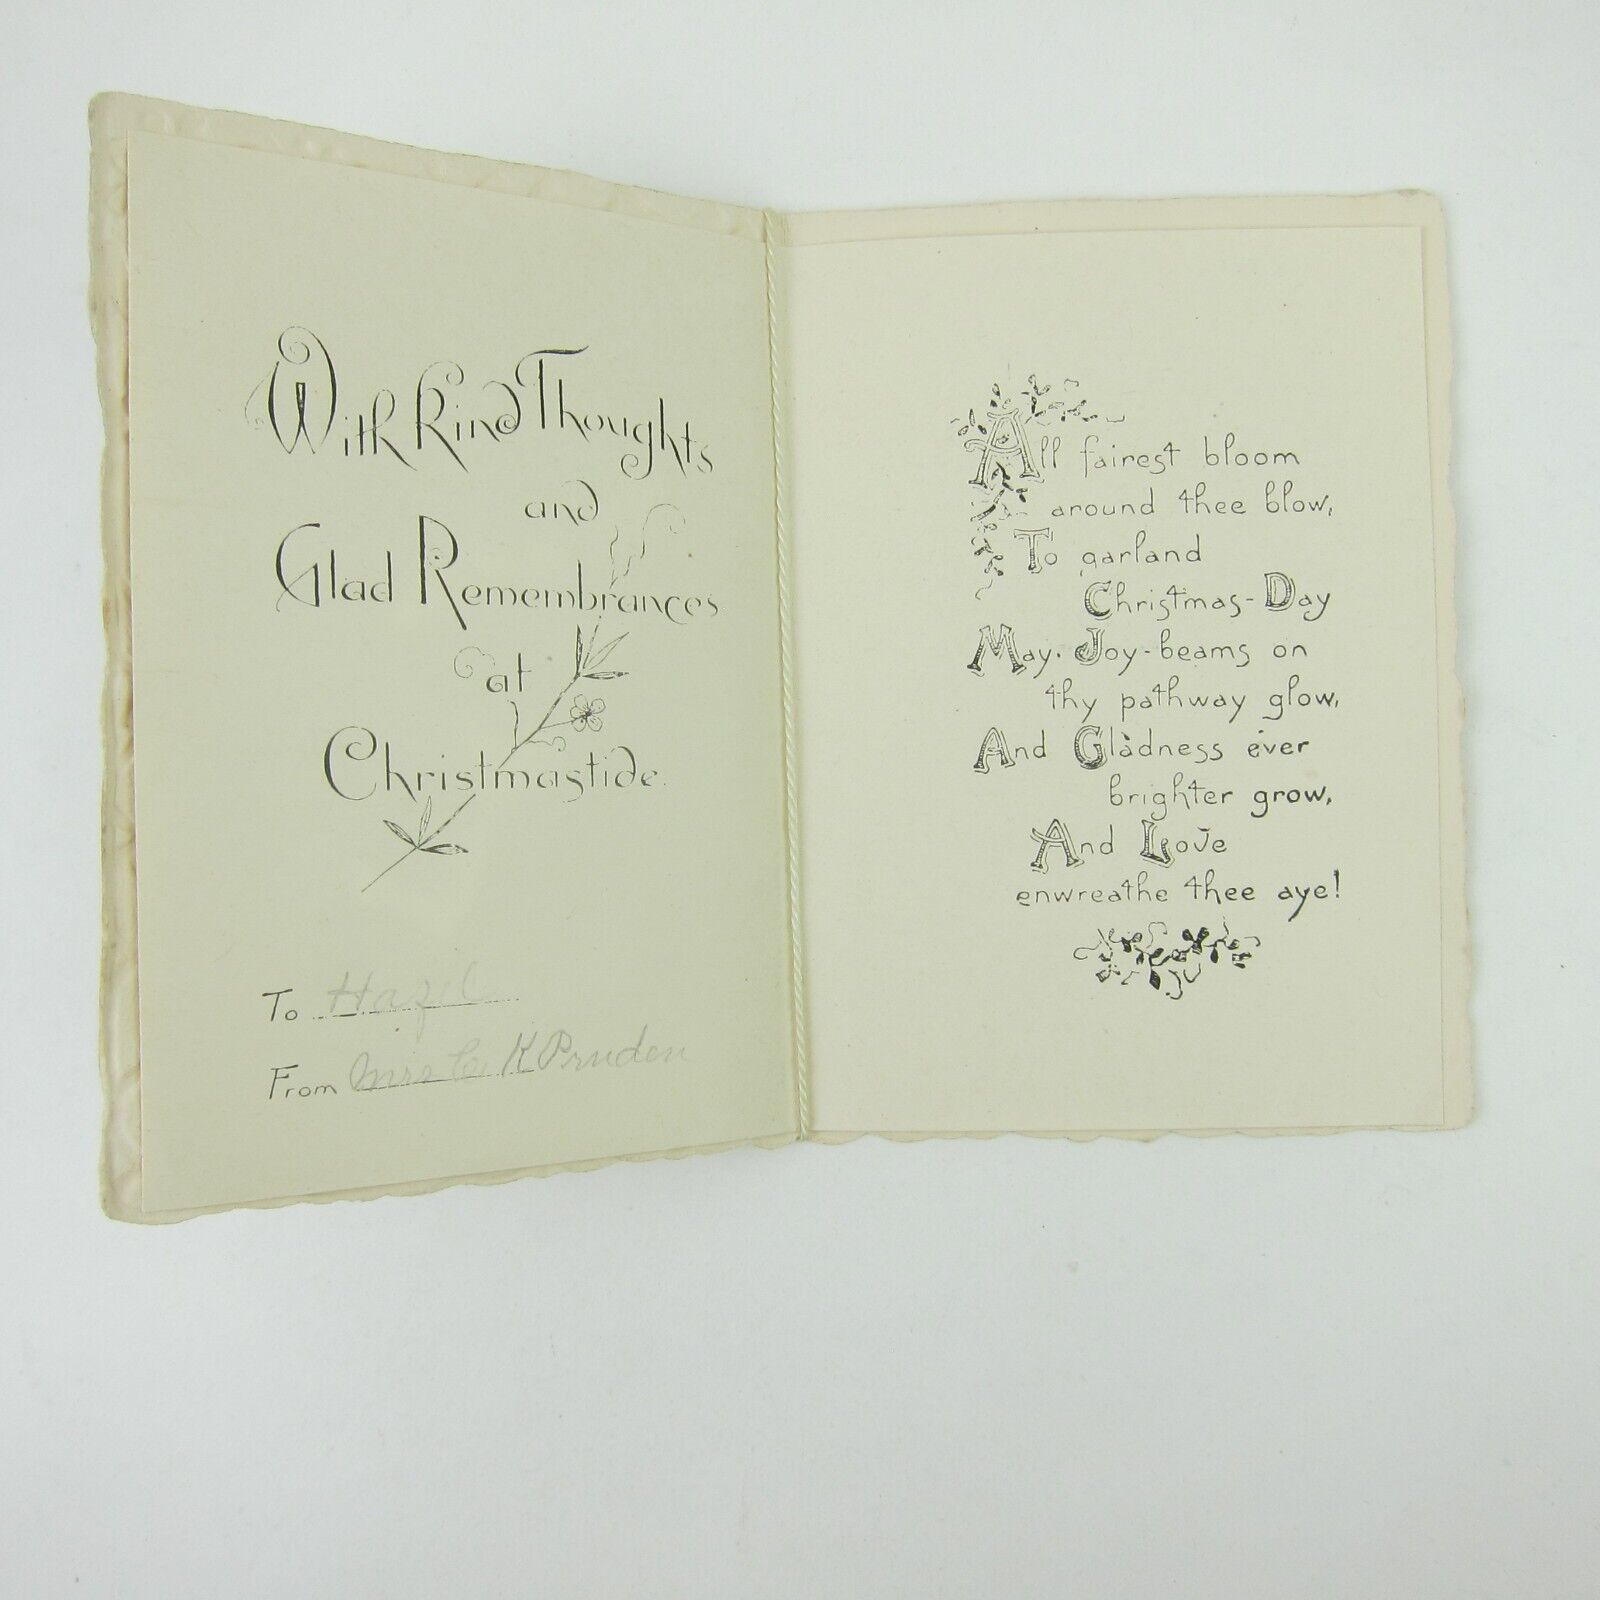 With Kind Thoughts
and
Glad Remembrances
at
Christmastide.
To Hazel
From Mrs C. K Pruden
All fairest bloom
around thee blow,
To garland
Christmas-Day
May Joy-beams on
thy pathway glow,
And Gladness ever
brighter grow,
And Love
enwreathe thee aye!